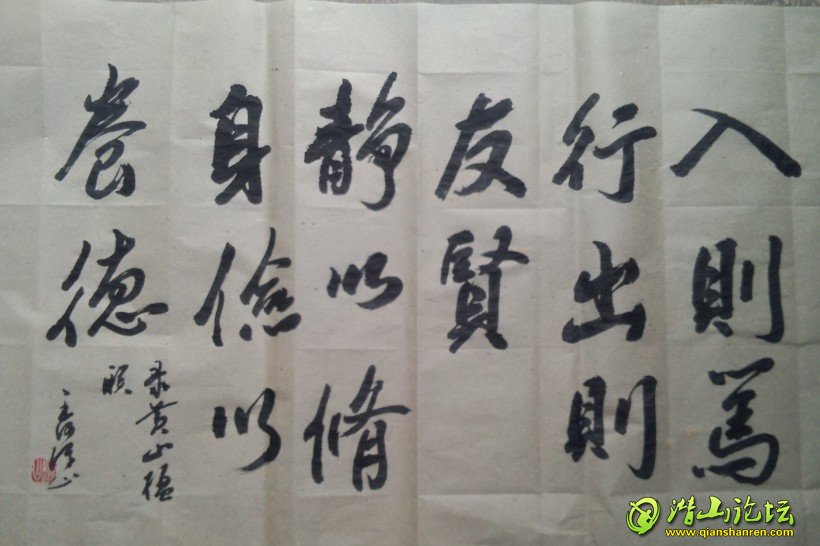 入則篤
行出則
友賢
靜以脩
身儉以
養德
录黄山楹
联
潜山论坛
www.qianshanren.com